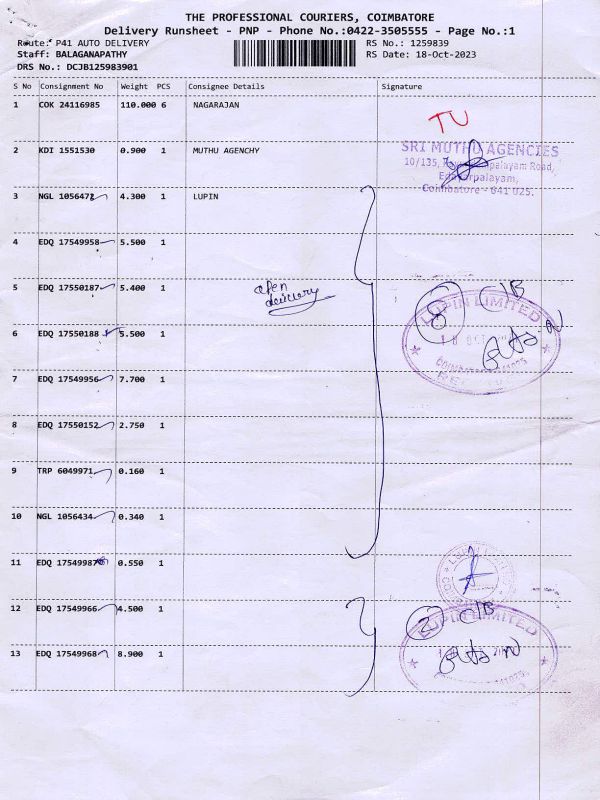 THE PROFESSIONAL COURIERS, COIMBATORE
Delivery Runsheet - PNP - Phone No.:0422-3505555 - Page No.:1
Route: P41 AUTO DELIVERY RS No.: 1259839
Staff: BALAGANAPATHY RS Date: 18-Oct-2023
DRS No.: DCJB125983901
S No Consignment No Weight PCS Consignee Details Signature
1 COK 24116985 110.000 6 NAGARAJAN
TU
2 KDI 1551530 0.900 1 MUTHU AGENCHY
SRI MUTHU AGENCIES
10/135, palayam Road,
Coimbatore - 641 025.
3 NGL 1056472 4.300 1 LUPIN
4 EDQ 17549958 5.500 1
5 EDQ 17550187 5.400 1
open
delivery
8 CIB
LUPIN LIMITED
6 EDQ 17550188 5.500 1
7 EDQ 17549956 7.700 1
8 EDQ 17550152 2.750 1
9 TRP 6049971 0.160 1
10 NGL 1056434 0.340 1
11 EDQ 17549987 0.550 1
12 EDQ 17549966 4.500 1
2 CIB
LUPIN LIMITED
13 EDQ 17549968 8.900 1